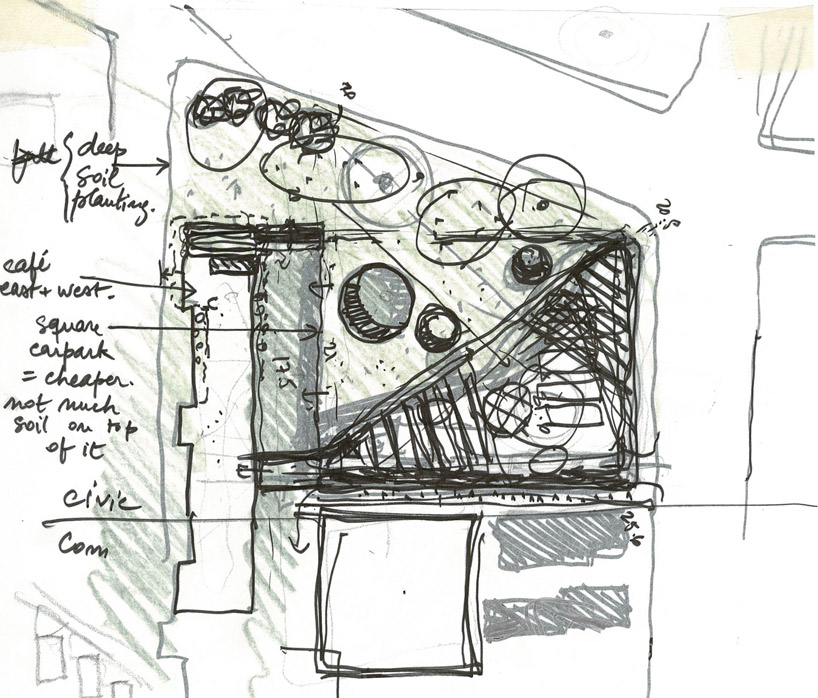 deep
soil
planting.
café
east + west.
square
carpark
= cheaper.
not much
soil on top
of it
civic
Com
20
20.5
17.5
25.6